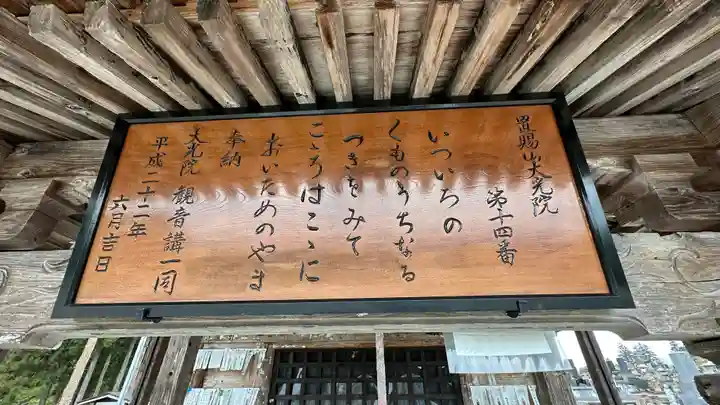 置賜山大光院
第十四番
いついろの
くものうちなる
つきをみて
こゝろはこゝに
おいためのやま
奉納
大光院 観音講一同
平成二十二年
六月吉日